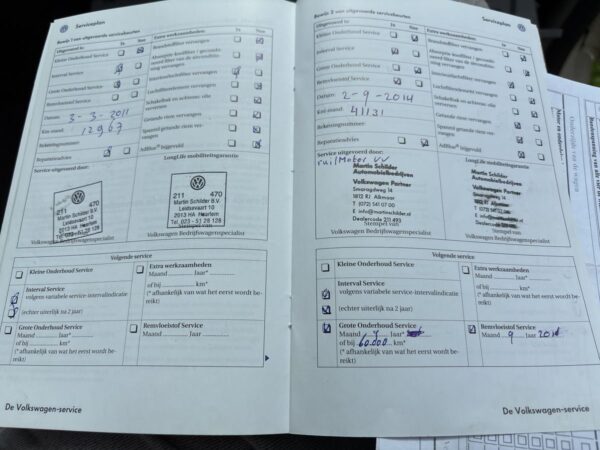 Serviceplan
Bewijs 1 van uitgevoerde servicebeurten
Uitgevoerd is: Ja Nee
Kleine Onderhoud Service
Interval Service
Grote Onderhoud Service
Remvloeistof Service
Datum: 3-3-2011
Km-stand: 12967
Rekeningnummer:
Reparatieadvies
Extra werkzaamheden: Ja Nee
Brandstoffilter vervangen
Interieurluchtfilter vervangen
Luchtfilterelement vervangen
Schakelbak en achteras: olie verversen
Getande riem vervangen
Spanrol getande riem vervangen
AdBlue® bijgevuld
Service uitgevoerd door:
LongLife mobiliteitsgarantie
211 470
Martin Schilder B.V.
Leidsevaart 10
2013 HA Haarlem
Tel. 023 - 51 28 128
211 470
Martin Schilder B.V.
Leidsevaart 10
2013 HA Haarlem
Tel. 023 - 51 28 128
Stempel van
Volkswagen Bedrijfswagenspecialist
Volkswagen Bedrijfswagenspecialist
Volgende service
Kleine Onderhoud Service
Interval Service
volgens variabele service-intervalindicatie
(echter uiterlijk na 2 jaar)
Grote Onderhoud Service
Maand ........ Jaar* ........
of bij ........ km*
(* afhankelijk van wat het eerst wordt bereikt)
Extra werkzaamheden
Maand ........ Jaar* ........
of bij ........ km*
(* afhankelijk van wat het eerst wordt bereikt)
Remvloeistof Service
Maand ........ Jaar ........
De Volkswagen-service
Serviceplan
Bewijs 2 van uitgevoerde servicebeurten
Uitgevoerd is: Ja Nee
Kleine Onderhoud Service
Interval Service
Grote Onderhoud Service
Remvloeistof Service
Datum: 2-9-2014
Km-stand: 41131
Rekeningnummer:
Reparatieadvies
Extra werkzaamheden: Ja Nee
Brandstoffilter vervangen
Interieurluchtfilter vervangen
Luchtfilterelement vervangen
Schakelbak en achteras: olie verversen
Getande riem vervangen
Spanrol getande riem vervangen
AdBlue® bijgevuld
Service uitgevoerd door:
LongLife mobiliteitsgarantie
ruilMotor
Martin Schilder
Automobielbedrijven
Volkswagen Partner
Smaragdweg 14
1812 RJ Alkmaar
T (072) 541 07 00
E info@martinschilder.nl
Dealercode 211 493
Martin Schilder
Automobielbedrijven
Volkswagen Partner
Stempel van
Volkswagen Bedrijfswagenspecialist
Volkswagen Bedrijfswagenspecialist
Volgende service
Kleine Onderhoud Service
Interval Service
volgens variabele service-intervalindicatie
(echter uiterlijk na 2 jaar)
Grote Onderhoud Service
Maand ........ Jaar*
of bij 60.000 km*
(* afhankelijk van wat het eerst wordt bereikt)
Extra werkzaamheden
Maand ........ Jaar* ........
of bij ........ km*
(* afhankelijk van wat het eerst wordt bereikt)
Remvloeistof Service
Maand 9 Jaar
De Volkswagen-service